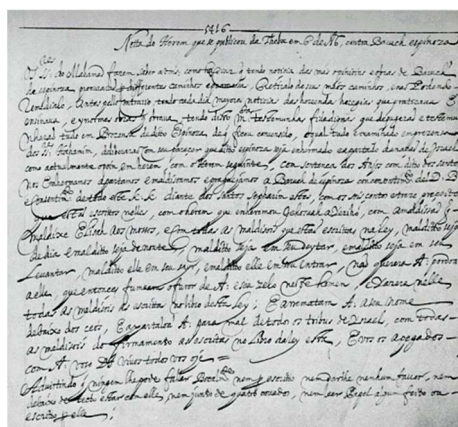 5416
Notta do Herem que se publicou da Theba em 6 de Ab, contra Baruch espinoza
Os SSres do Mahamad fazem saber a vms, como ha diaz q tendo noticia das mas opinioins e obras de Baruch
de espinoza procurarão p differentes caminhos e promessas retirálo de seus máos caminhos, e não Podendo
Remedialo, antes pello contrario, tendo cada dia mayores noticias das horrendas heregias que praticava e
ensinava, e ynormes obras q obrava, tendo disto m testemunhas fidedignas que depugerão e testemu
nharão tudo em Prezensa de dito Espinoza, de q ficou convensido, o qual tudo examinado em prezensa
dos SSres Hahamim, deliberarão com seu parecer que dito Espinoza seja enhermado e apartado da nação de Israel
como actualmente o poin em herem, com o herem seguinte; Com sentenca dos Anjos com dito dos santos
nos Enhermamos apartamos e maldisoamos e praguejamos a Baruch de espinoza com consentim del D B
e consentim de todo este K K diante dos santos Sepharim estes, com os seis centos e treze preceitos
que estão escritos nelles, com o herem que enheremou Jahosuah a Yeriho, com a maldissão q
maldixe Elisah aos mossos, e com todas as maldisois que estão escritas na ley, malditto seja
de dia e malditto seja de noute, malditto seja em seu deytar, e malditto seja em seu
Levantar, malditto elle em seu sayr, e malditto elle em seu entrar, não querera A. perdoar
a elle, que entonces fumeara o furor de A: e seu zelo neste homem, e yazera nelle
todas as maldisois as escritas no libro desta ley; E arrematara A: a seu nome
debaixo dos ceos, E apartaloa A: para mal de todos os tribus de Ysrael, com todas
as maldisois do firmamento as escritas no libro da ley esta, E vos os apegados
com A. vosso D. vivos todos vos oje =
Advirtindo q ningem lhe pode fallar Bocalm nem p escrito nem darlhe nenhum favor, nem
debaixo de tecto estar com elle, nem junto de quatro covados, nem leer Papel algum feito ou
escrito p elle ;